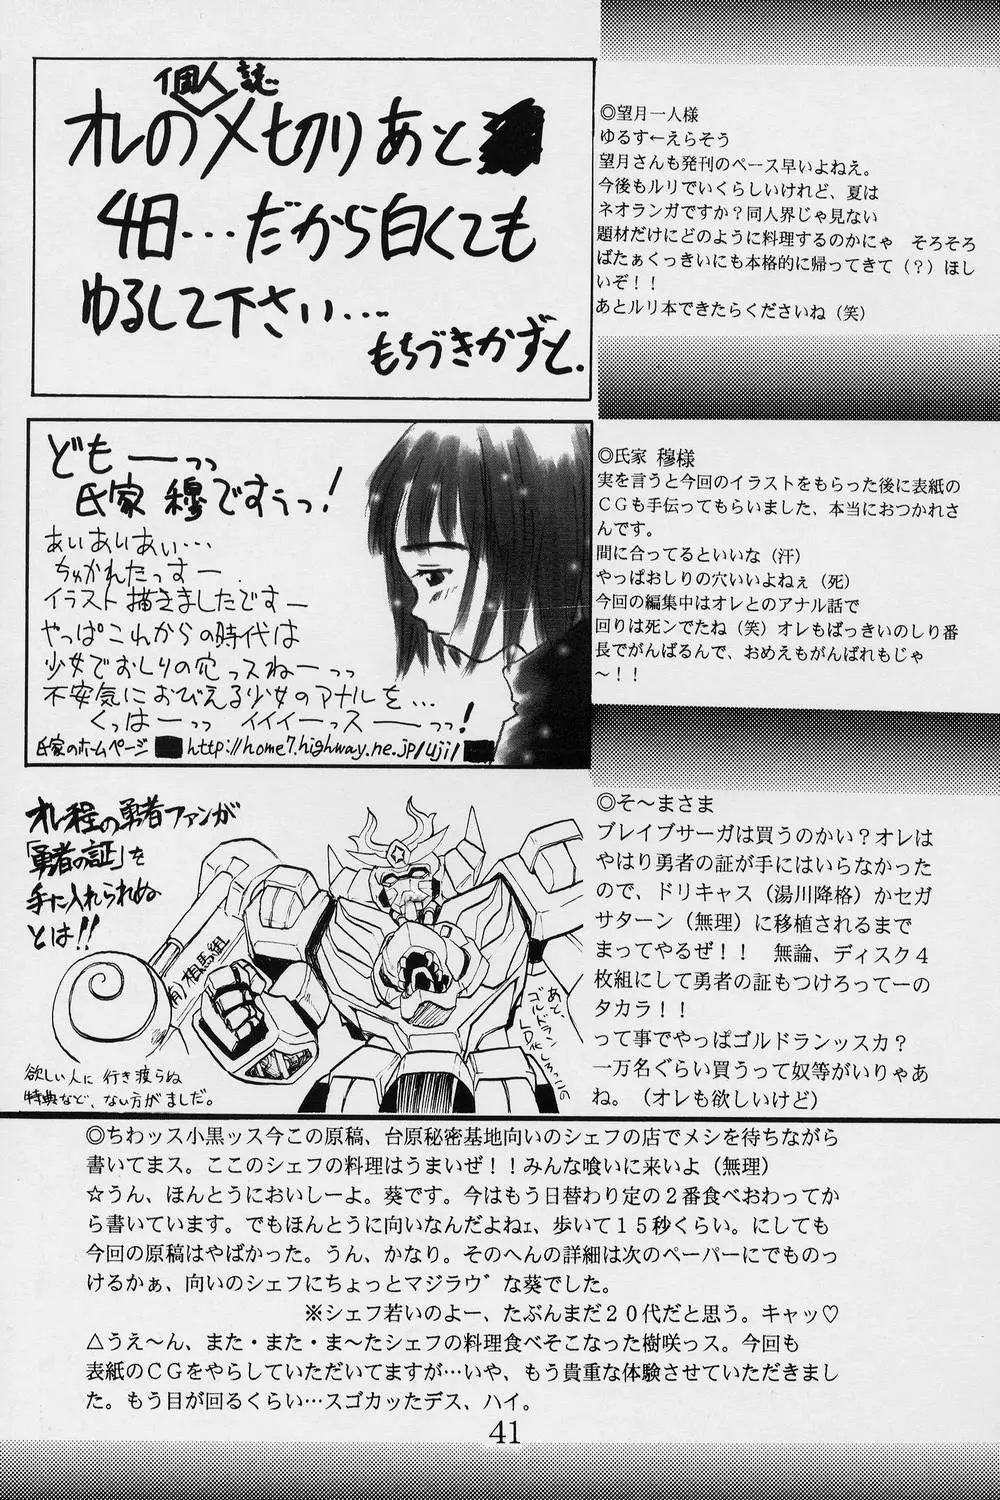 個人誌
オレの〆切りあと
4日…だから白くても
ゆるして下さい…
もちづきかずと.
◎望月一人様
ゆるすーえらそう
望月さんも発刊のペース早いよねえ。
今後もルリでいくらしいけれど、夏は
ネオランガですか？同人界じゃ見ない
題材だけにどのように料理するのかにゃ　そろそろ
ばたぁくっきいにも本格的に帰ってきて（？）ほし
いぞ！！
あとルリ本できたらくださいね（笑）
どもーーっっ
氏家 穆ですぅっ！
あぃあぃあぃ…
ちゅかれたっすー
イラスト描きましたですー
氏家のホームページ http://home7.highway.ne.jp/uji/
◎氏家 穆様
実を言うと今回のイラストをもらった後に表紙の
ＣＧも手伝ってもらいました、本当におつかれさ
んです。
間に合ってるといいな（汗）
オレ程の勇者ファンが
「勇者の証」を
手に入れられぬ
とは!!
(有)相馬組
あと、
ゴルドラン
欲しい人に行き渡らぬ
特典など、ない方がましだ。
◎そ～まさま
ブレイブサーガは買うのかい？オレは
やはり勇者の証が手にはいらなかった
ので、ドリキャス（湯川降格）かセガ
サターン（無理）に移植されるまで
まってやるぜ！！　無論、ディスク４
枚組にして勇者の証もつけろってーの
タカラ！！
って事でやっぱゴルドランッスカ？
一万名ぐらい買うって奴等がいりゃあ
ね。（オレも欲しいけど）
◎ちわッス小黒ッス今この原稿、台原秘密基地向いのシェフの店でメシを待ちながら
書いてまス。ここのシェフの料理はうまいぜ！！みんな喰いに来いよ（無理）
☆うん、ほんとうにおいしーよ。葵です。今はもう日替わり定の２番食べおわってか
ら書いています。でもほんとうに向いなんだよねェ、歩いて１５秒くらい。にしても
今回の原稿はやばかった。うん、かなり。そのへんの詳細は次のペーパーにでものっ
けるかぁ、向いのシェフにちょっとマジラヴ゛な葵でした。
※シェフ若いのよー、たぶんまだ２０代だと思う。キャッ♡
△うえ～ん、また・また・ま～たシェフの料理食べそこなった樹咲っス。今回も
表紙のＣＧをやらしていただいてますが…いや、もう貴重な体験させていただきまし
た。もう目が回るくらい…スゴカッたデス、ハイ。
41